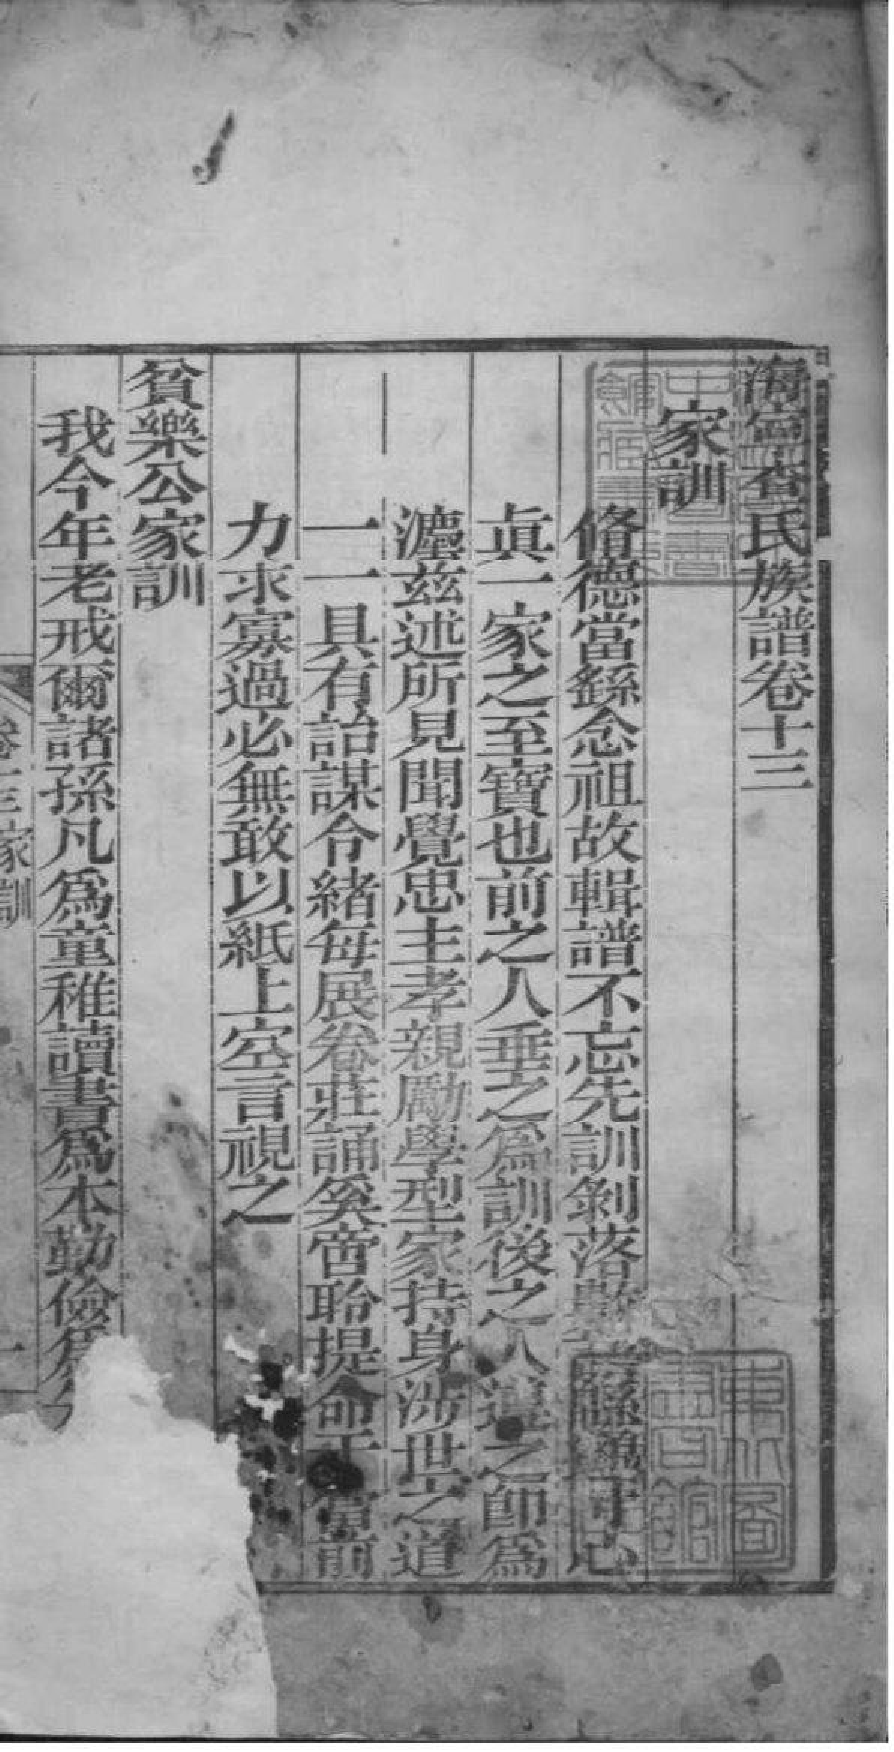 海寧查氏族譜卷十三
家訓
脩德當繇念祖故輯譜不忘先訓剝落數 于心
眞一家之至寶也前之人垂之爲訓後之人遵之卽爲
瀍茲述所見聞覺忠主孝親勵學型家持身涉世之道
一一具有詒謀令緖每展卷莊誦奚啻聆提命于當前
力求寡過必無敢以紙上空言視之
貧樂公家訓
我今年老戒爾諸孫凡爲童稚讀書爲本勤儉爲
卷十三家訓
一